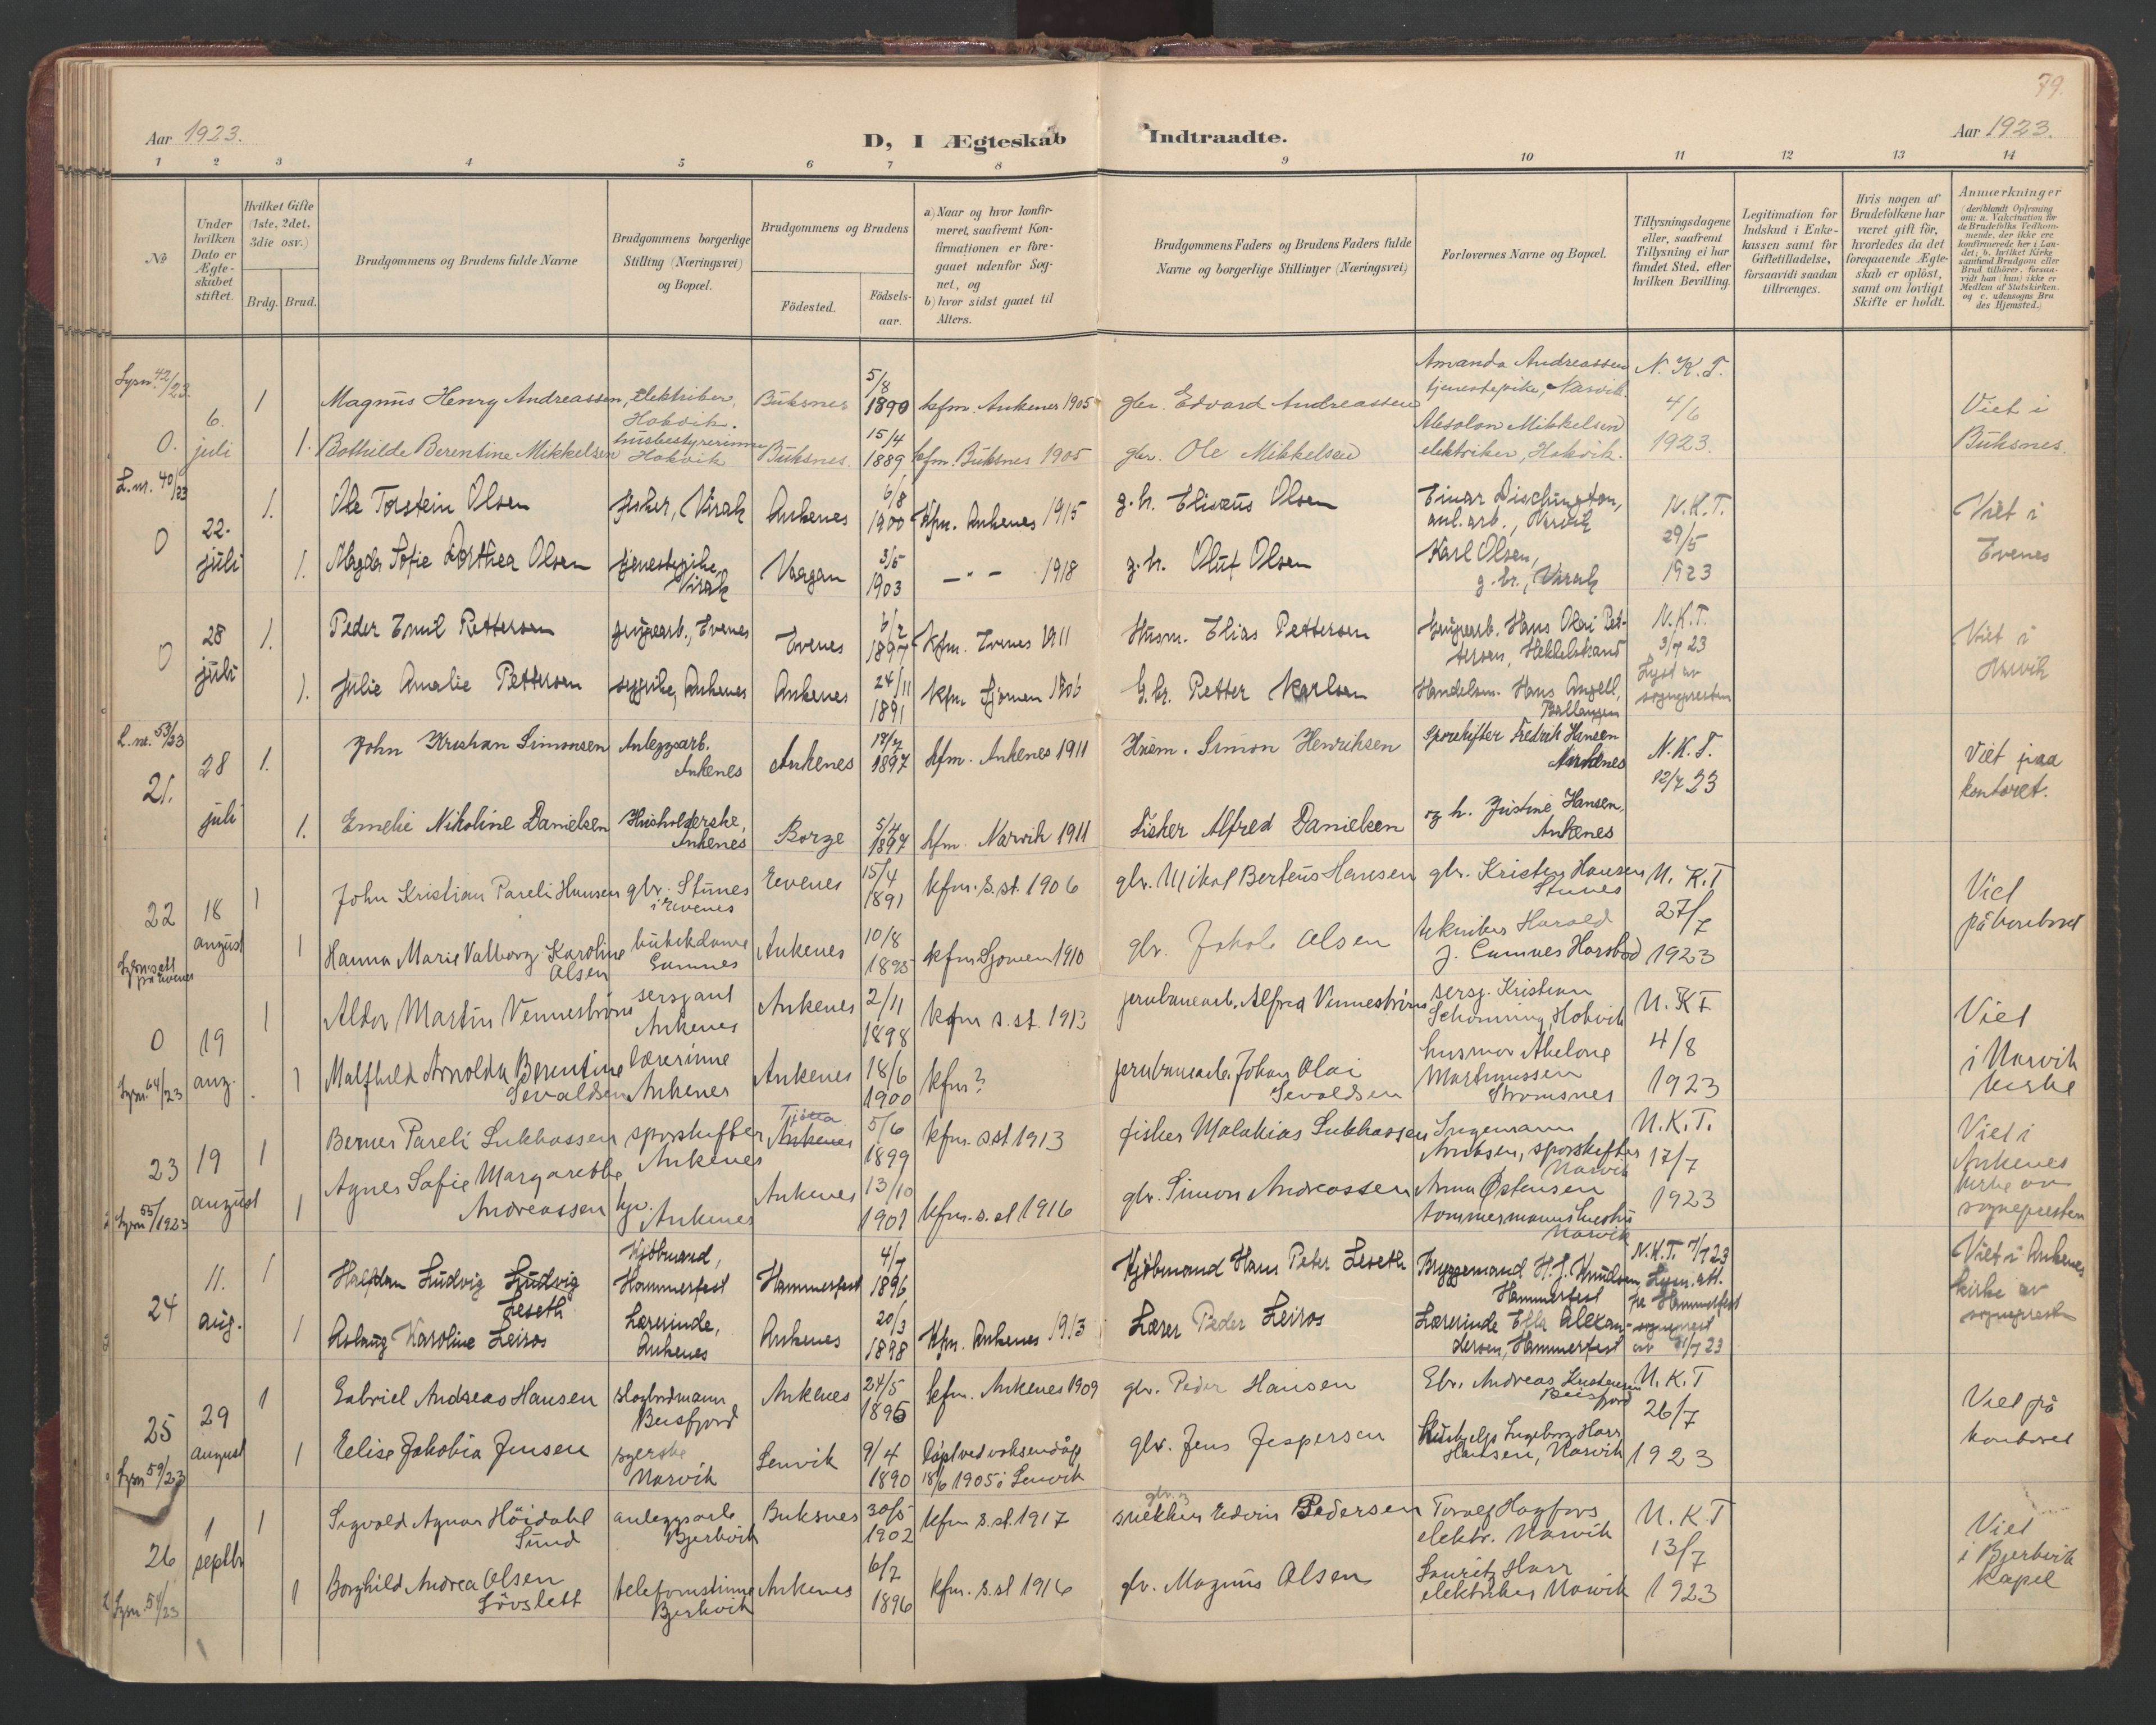 79.
Aar 1923.
D, I Ægteskab Indtraadte.
Aar 1923.
1 2 3 4 5 6 7 8 9 10 11 12 13 14
No
Under hvilken Dato er Ægteskabet stiftet.
Hvilket Gifte (1ste, 2det, 3die osv.)
Brdg. Brud.
Brudgommens og Brudens fulde Navne
Brudgommens borgerlige Stilling (Næringsvei) og Bopæl.
Brudgommens og Brudens
Födested.
Födsels-aar.
a) Naar og hvor konfirmeret, saafremt Konfirmationen er foregaaet udenfor Sognet, og
b) hvor sidst gaaet til Alters.
Brudgommens Faders og Brudens Faders fulde Navne og borgerlige Stillinger (Næringsvei)
Forlovernes Navne og Bopæl.
Tillysningsdagene eller, saafremt Tillysning ei har fundet Sted, efter hvilken Bevilling.
Legitimation for Indskud i Enkekassen samt for Giftetilladelse, forsaavidt saadan tiltrænges.
Hvis nogen af Brudefolkene har været gift för, hvorledes da det foregaaende Ægteskab er oplöst, samt om lovligt Skifte er holdt.
Anmærkninger (deriblandt Oplysning om: a. Vakcination för de Brudefolks Vedkommende, der ikke ere konfirmerede her i Landet; b. hvilket Kirkesamfund Brudgom eller Brud tilhörer, forsaavidt han (hun) ikke er Medlem af Statskirken. og c. udensogns Brudes Hjemsted.)
Lysn. 42/23. 6. 1 Magnus Henry Andreassen, elektriker, Hokvik. Buksnes 5/8 1890 kfm. Ankenes 1905 gbr. Edvard Andreassen Amanda Andreassen tjenestepike, Narvik. N. K. T. 4/6 1923. Viet i Buksnes.
0. juli 1. Bothilde Berentine Mikkelsen husbestyrerinne Hokvik Buksnes. 15/4 1889 kfm. Buksnes 1905 gbr. Ole Mikkelsen Absolon Mikkelsen elektriker, Hokvik.
L.nr. 40/23 0 22. juli 1. Ole Torstein Olsen fisker, Virak Ankenes 6/8 1900 kfm. Ankenes 1915 g.br. Eliseus Olsen Einar Dischington, anl.arb., Narvik N.K.T. 29/5 1923 Viet i Evenes
1. Magda Sofie Dorthea Olsen tjenestepike, Virak Vaagan 3/5 1903 — " — 1918 g.br. Oluf Olsen Karl Olsen, g.br., Virak
0 28 juli 1. Peder Emil Pettersen grubearb., Evenes Evenes 6/2 1897 Kfm. Evenes 1911 Husm. Elias Pettersen grubearb. Hans Olai Pettersen, Hekkelstrand N.K.T. 3/7 23 Lyst av sogneprestern Viet i Narvik
1. Julie Amalie Pettersen sypike, Ankenes Ankenes 24/11 1891 Kfm. Gjömen 1906 G.br. Petter Karlsen Handelsm. Hans Angell, Ballangen
L.nr. 53/23 21. 28 juli 1. John Kristian Simonsen Anleggsarb. Ankenes Ankenes 1897 kfm. Ankenes 1911 Husm. Simon Henriksen Sporskifter Fredrik Hansen N.K.T. 12/7 23 Viet paa kontoret.
1. Emelie Nikoline Danielsen Husholderske, Ankenes Borge 5/4 1897 kfm. Narvik 1911 Fisker Alfred Danielsen og h. Justine Hansen, Ankenes
22 18 august 1 John Kristian Pareli Hansen gbr. Stunes i Evenes Evenes 15/4 1891 kfm. s.st. 1906 gbr. Nikol Berteus Hansen gbr. Kristen Hansen Stunes N. K. T 27/7 1923 Viet på kontoret
1 Hanna Marie Valborg Karoline Olsen butikdame Emmes Ankenes 10/8 1895 kfm Gjomen 1910 gbr. Jakob Olsen tekniker Harald J. Emmes Harstad
0 19 aug. 1 Aldor Martin Vennestrøm sersjant Ankenes Ankenes 2/11 1898 kfm s.st. 1913 jernbanearb. Alfred Vennestrøm sersj. Kristian Schönning, Hokvik N. K T 4/8 1923 Viet i Narvik kirke
Lysn. 64/23 1 Malfhild Arnolda Berentine Sevaldsen lærerinne Ankenes Ankenes 18/6 1900 kfm? jernbanearb. Johan Olai Sevaldsen husmor Abelone Martinussen Stromsnes
23 19 august 1 Berner Pareli Lukkassen sporskifter Ankenes Tjötta Ankenes 5/6 1899 kfm. s.st 1913 fisker Malakias Lukkassen Ingemann Arntsen, sporskifter Narvik N.K.T. 17/7 1923 Viet i Ankenes kirke av sognepresten
Lysn 55/1923 1 Agnes Sofie Margarethe Andreassen hj. Ankenes Ankenes 13/10 1901 kfm. s.st 1916 gbr. Simon Andreassen Anna Østensen tommermannshustru Narvik
24 11. aug. 1 Halfdan Ludvig Ludvig Leseth Kjöbmand, Hammerfest Hammerfest 4/7 1896 Kjöbmand Hans Peter Leseth Bryggemand H. J. Knudsen, Hammerfest N.K.T. 7/7 23 Lysn. att. fra Hammerfest sogneprest av 31/7 23 Viet i Ankenes kirke av sognepresten
1 Aslaug Karoline Leiros Lærerinde, Ankenes Ankenes 20/3 1898 Kfm. Ankenes 1913 Lærer Peder Leiros Lærerinde Ella Alexandersen, Hammerfest
25 29 august 1 Gabriel Andreas Hansen slagbordmann Beisfjord Ankenes 24/5 1895 kfm. Ankenes 1909 gbr. Peder Hansen Gbr. Andreas Kristensen Beisfjord N.K.T 26/7 1923 Viet på kontoret
Lysn 59/23 1 Elise Jakobia Jensen syerske Narvik Lenvik 9/4 1890 Döpt ved voksendåp 18/6 1905 i Lenvik gbr. Jens Jespersen Hushjelp Ingeborg Harr Hansen, Narvik
26 1 septbr 1 Sigvald Agnar Höidahl Sund anleggsarb Bjerkvik Buksnes 30/5 1902 kfm s.st. 1917 gbr. og snekker Edvin Pedersen Toralf Hagfors elektr. Narvik N.K.T 13/7 1923 Viet i Bjerkvik kapel
Lysn. 54/23 1 Borghild Andrea Olsen Lövslett telefonistinne Bjerkvik Ankenes 6/7 1896 kfm. s.st 1916 gbr. Magnus Olsen Lauritz Harr elektriker Narvik